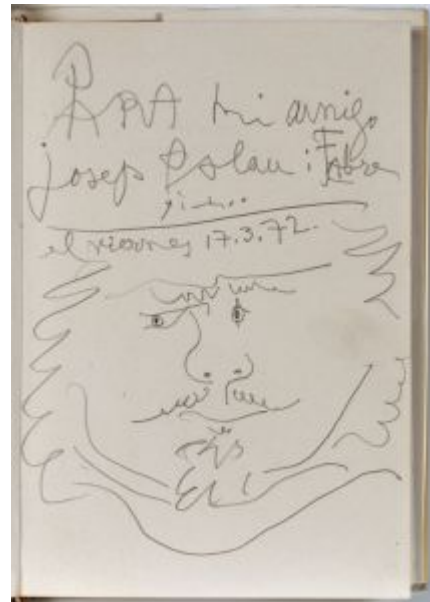 PARA mi amigo
josep Palau i Fabre
Picasso
el viernes 17.3.72.